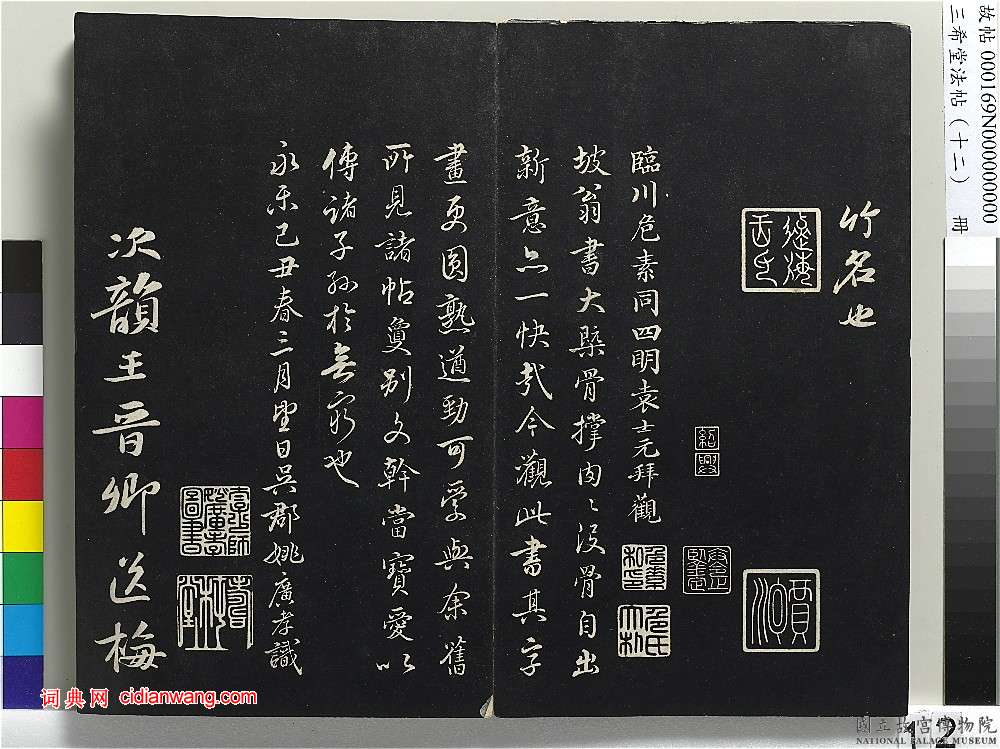 竹名也
臨川危素同四明袁士元拜觀
坡翁書大槩骨撐肉肉沒骨自出
新意亦一快哉今觀此書其字
畫更圓熟遒勁可愛與余舊
所見諸帖敻別文幹當寶愛以
傳諸子孫於無窮也
永樂己丑春三月望日吳郡姚廣孝識
次韻王晉卿送梅
紹興
賈
危氏
大朴
故帖 000169N000000000
三希堂法帖(十二) 冊
词典网 cidianwang.com
國立故宮博物院
NATIONAL PALACE MUSEUM
12